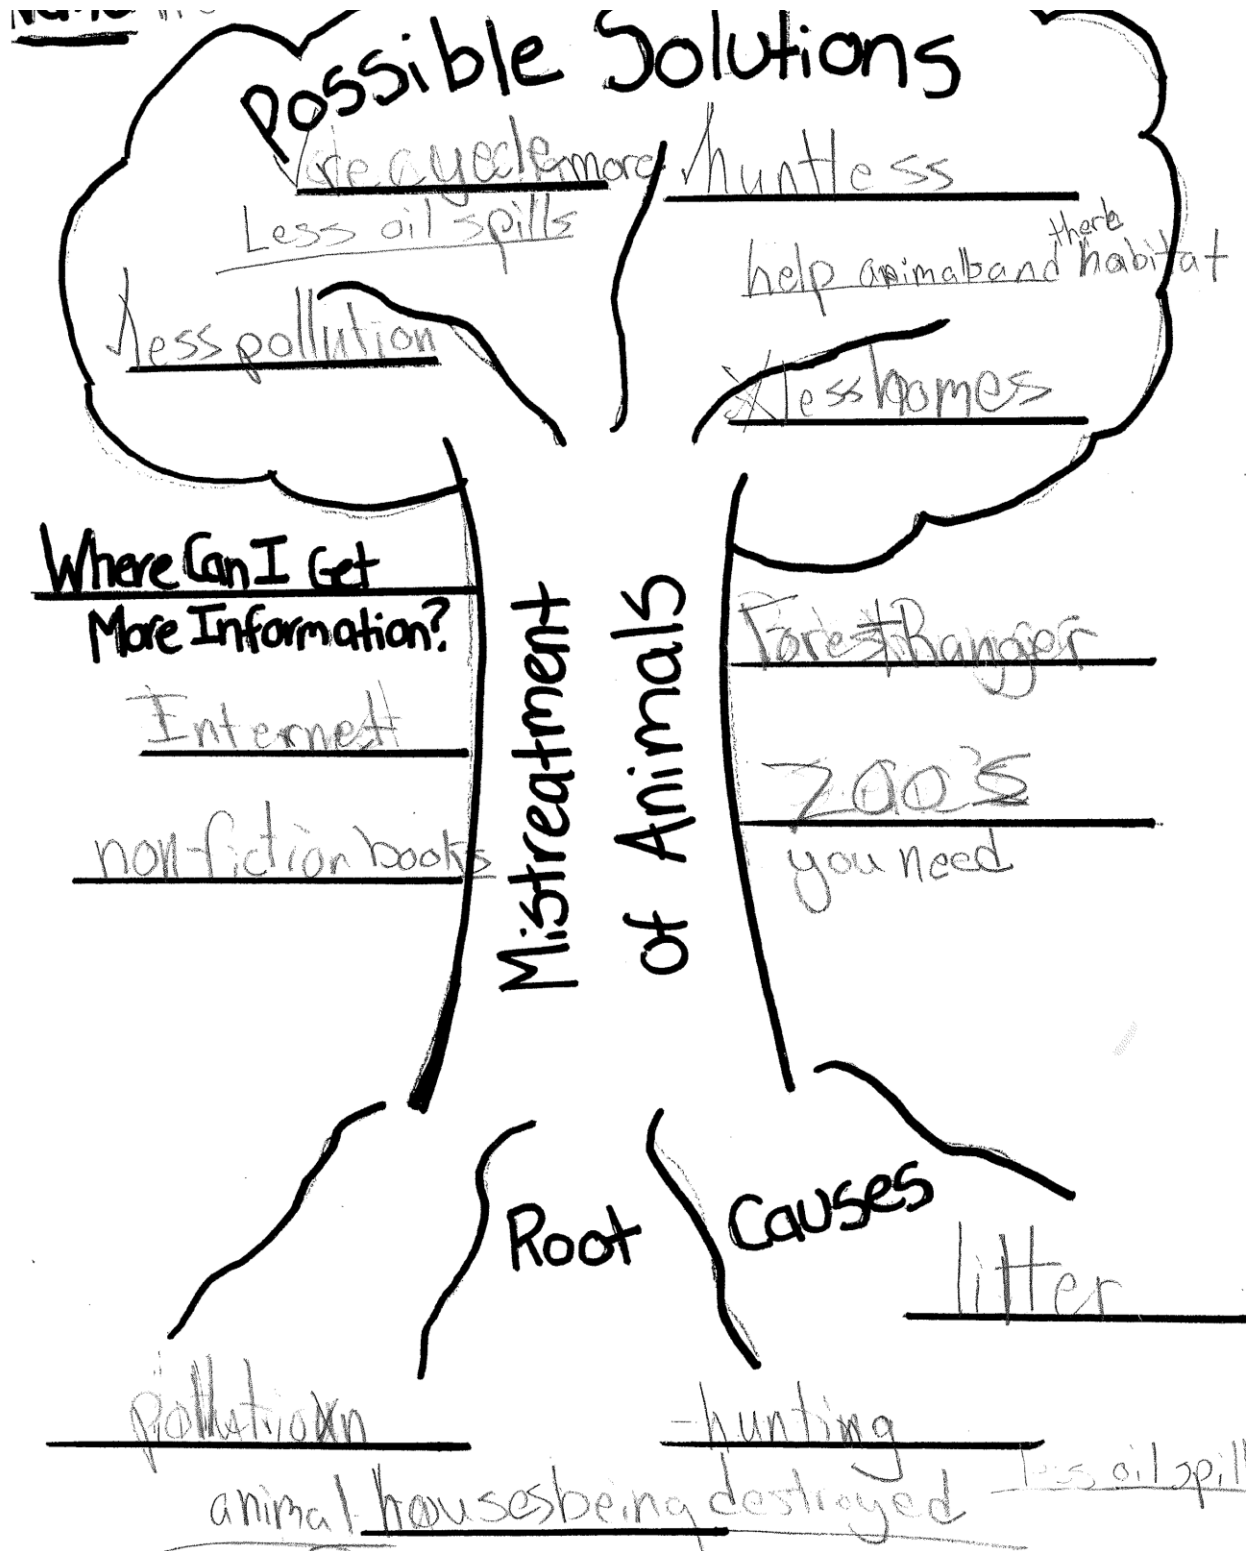 Possible Solutions
recycle more
huntless
Less oil spills
there
help animals and habitat
less pollution
less homes
Where Can I Get
More Information?
Internet
non-fiction books
Mistreatment
of Animals
Forest Ranger
zoo's
you need
Root Causes
litter
pollution
-hunting
less oil spill
animal houses being destroyed